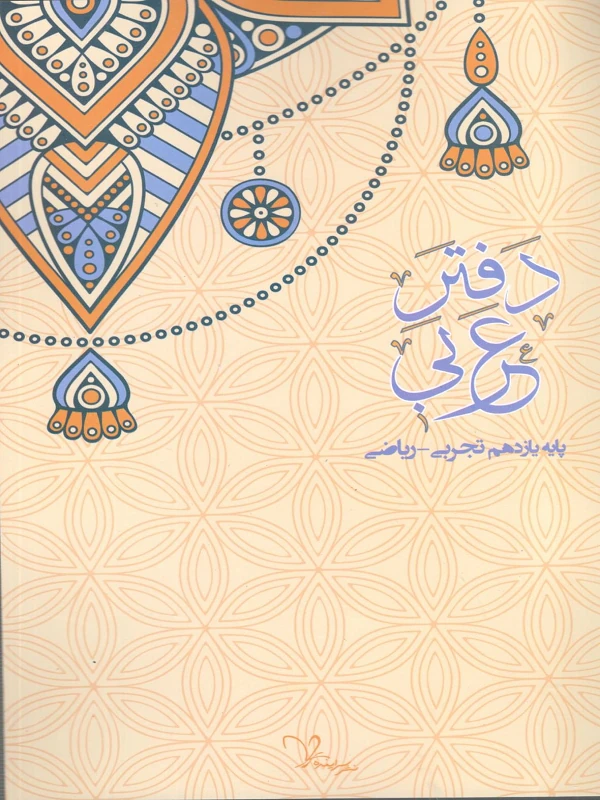 دفتر
عربی
پایه یازدهم تجربی - ریاضی